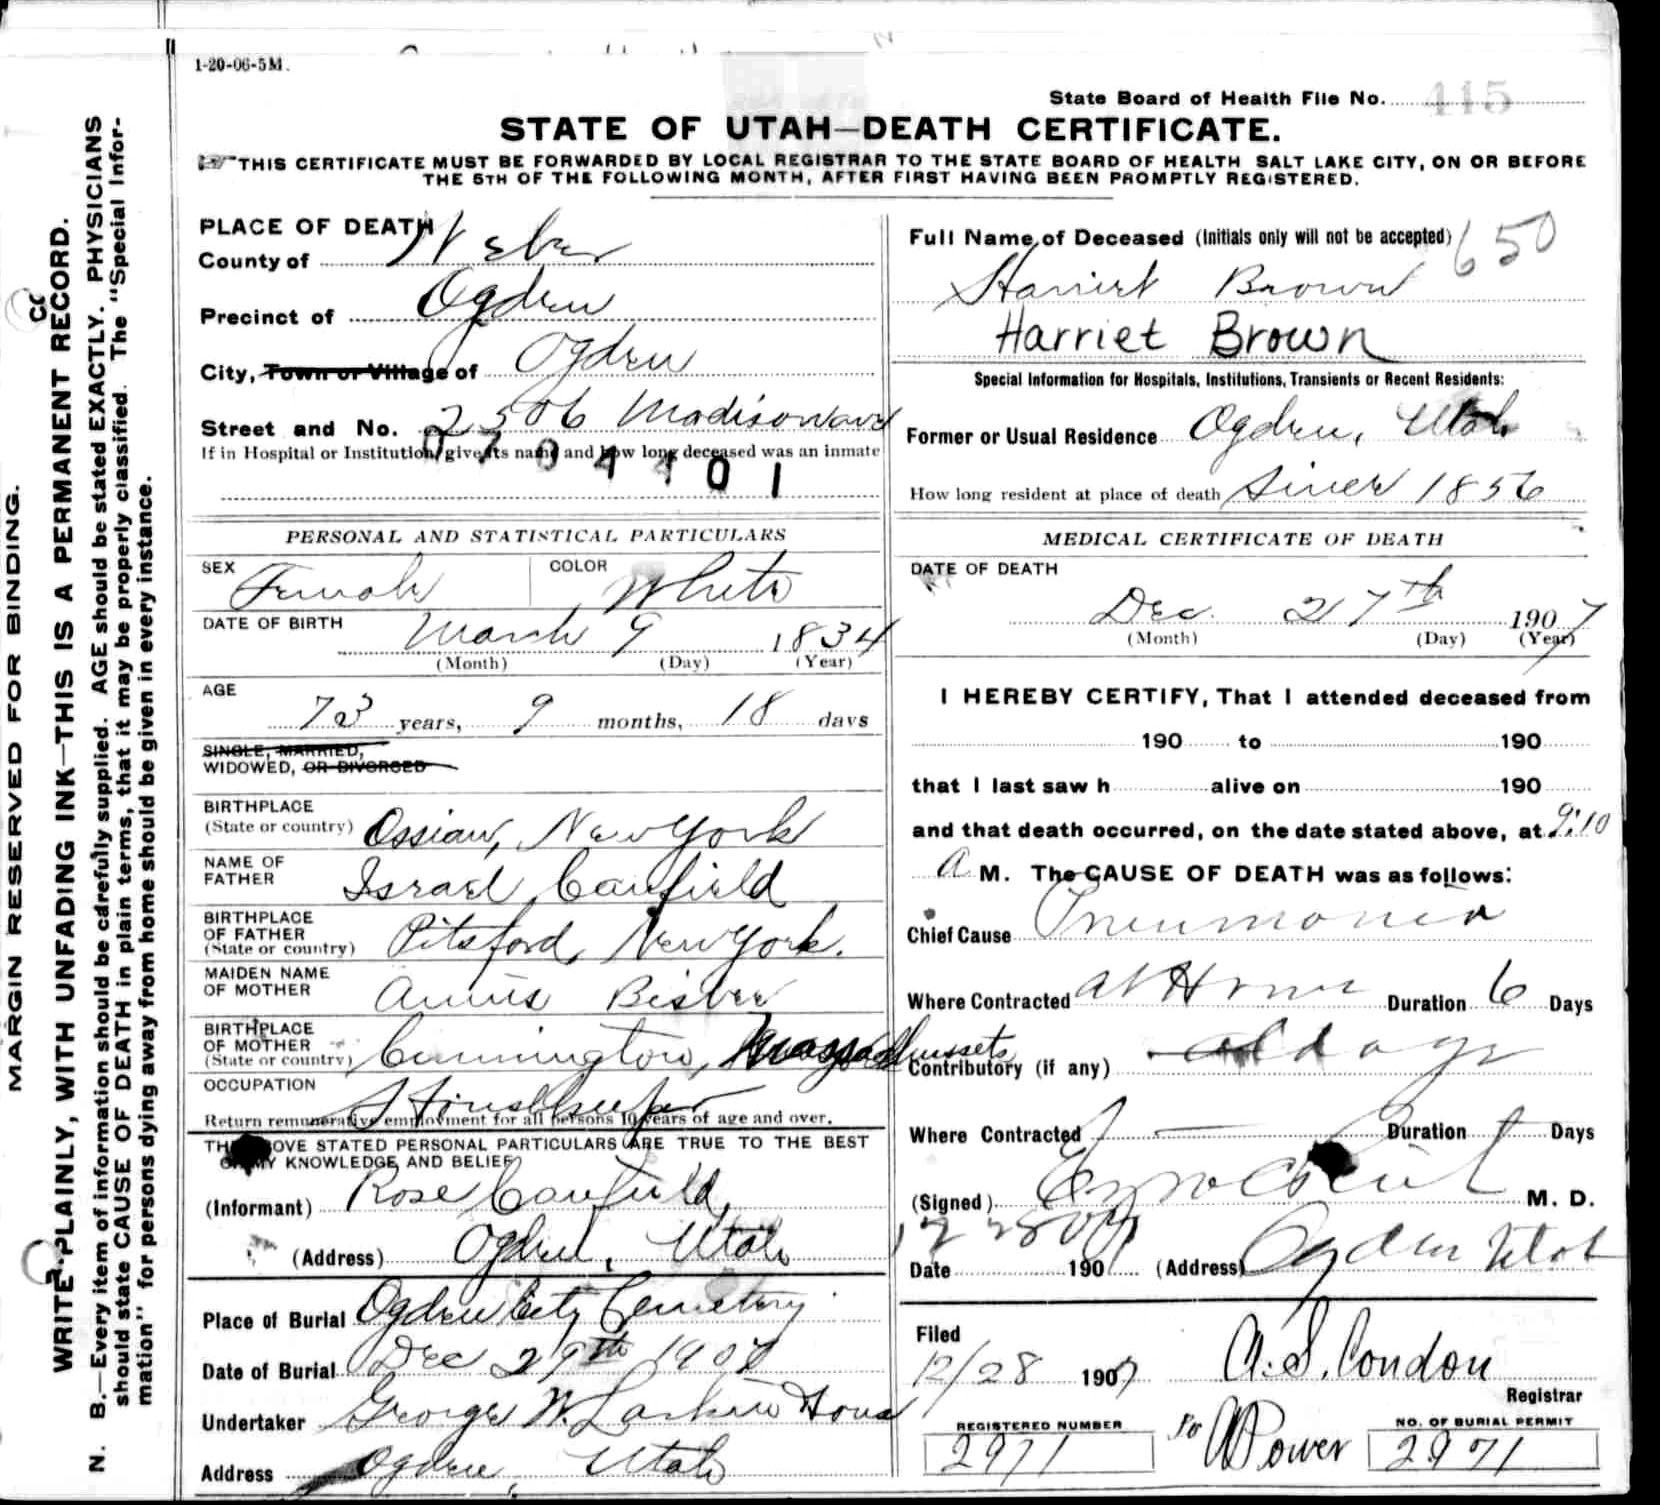 1-20-06-5M.
State Board of Health File No. 415
STATE OF UTAH—DEATH CERTIFICATE.
THIS CERTIFICATE MUST BE FORWARDED BY LOCAL REGISTRAR TO THE STATE BOARD OF HEALTH SALT LAKE CITY, ON OR BEFORE
THE 5TH OF THE FOLLOWING MONTH, AFTER FIRST HAVING BEEN PROMPTLY REGISTERED.
MARGIN RESERVED FOR BINDING.
WRITE PLAINLY, WITH UNFADING INK—THIS IS A PERMANENT RECORD.
N. B.—Every item of information should be carefully supplied. AGE should be stated EXACTLY. PHYSICIANS
should state CAUSE OF DEATH in plain terms, that it may be properly classified. The "Special Infor-
mation" for persons dying away from home should be given in every instance.
PLACE OF DEATH
County of Weber
Precinct of Ogden
City, Town or Village of Ogden
Street and No. 2506 Madison ave
If in Hospital or Institution, give its name and how long deceased was an inmate
0704401
PERSONAL AND STATISTICAL PARTICULARS
SEX Female COLOR White
DATE OF BIRTH March 9 1834
(Month) (Day) (Year)
AGE
73 years, 9 months, 18 days
SINGLE, MARRIED,
WIDOWED, OR DIVORCED
BIRTHPLACE
(State or country) Ossian, New York
NAME OF
FATHER Israel Canfield
BIRTHPLACE
OF FATHER
(State or country) Pitsford, New York.
MAIDEN NAME
OF MOTHER Bisbee
BIRTHPLACE
OF MOTHER
(State or country) Cummington, Massachussets
OCCUPATION Housekeeper
Return remunerative employment for all persons 10 years of age and over.
THE ABOVE STATED PERSONAL PARTICULARS ARE TRUE TO THE BEST
OF MY KNOWLEDGE AND BELIEF
(Informant) Rose Canfield,
(Address) Ogden, Utah
Place of Burial Ogden City Cemetery
Date of Burial Dec 29th 1907
Undertaker George W. Larkin
Address Ogden, Utah
Full Name of Deceased (Initials only will not be accepted) 650
Harriet Brown
Harriet Brown
Special Information for Hospitals, Institutions, Transients or Recent Residents:
Former or Usual Residence Ogden, Utah
How long resident at place of death Since 1856
MEDICAL CERTIFICATE OF DEATH
DATE OF DEATH
Dec. 27th 1907
(Month) (Day) (Year)
I HEREBY CERTIFY, That I attended deceased from
190 to 190
that I last saw h alive on 190
and that death occurred, on the date stated above, at 9:10
A M. The CAUSE OF DEATH was as follows:
Chief Cause Pneumonia
Where Contracted at Home Duration 6 Days
Contributory (if any) old age
Where Contracted Duration Days
(Signed) M. D.
Date 190 (Address) Ogden Utah
Filed
12/28 1907 A. S. Condon
Registrar
REGISTERED NUMBER
2971
Power
NO. OF BURIAL PERMIT
2971